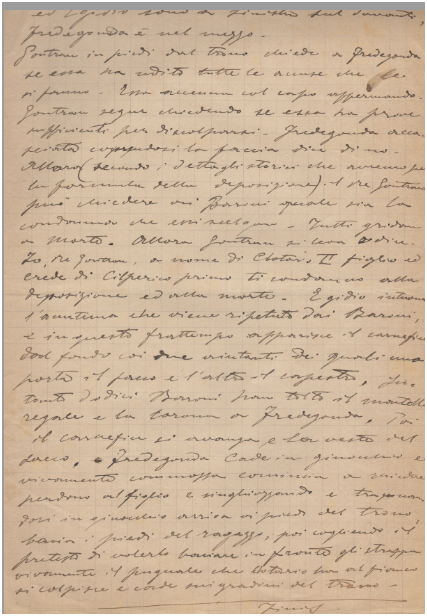 ed Egidio sono a sinistra sul davanti,
Fredegonda è nel mezzo.
Gontran in piedi dal trono chiede a Fredegonda
se essa ha udito tutte le accuse che le
si fanno. Essa accenna col capo affermando.
Gontran segue chiedendo se essa ha prove
sufficienti per discolparsi. Fredegonda acca-
sciata la faccia dice di no.
Allora (secondo i dettagli storici che avremo per
la formula della deposizione) il re Gontran
può chiedere ai Baroni quale sia la
condanna che essi scelgano. Tutti gridano
a morte. Allora Gontran si leva e dice.
Io, re Gontran, a nome di Clotario II figlio ed
erede di Cilperico primo ti condanno alla
deposizione ed alla morte. Egidio intuona
l'anatema che viene ripetuto dai Baroni,
e in questo frattempo apparisce il carnefice
dal fondo coi due aiutanti dei quali uno
porta il sacco e l'altro il capestro. In-
tanto dodici Baroni han tolto il mantello
regale e la corona a Fredegonda. Poi
il carnefice si avanza e la veste del
sacco. Fredegonda cade in ginocchio e
vivamente commossa comincia a
perdono al figlio e singhiozzando e trascinan-
dosi in ginocchio arriva ai piedi del trono,
bacia i piedi del ragazzo, poi cogliendo il
pretesto di volerlo baciare in fronte gli strappa
vivamente il pugnale che Clotario ha al fianco
si colpisce e cade sui gradini del trono.
Finis